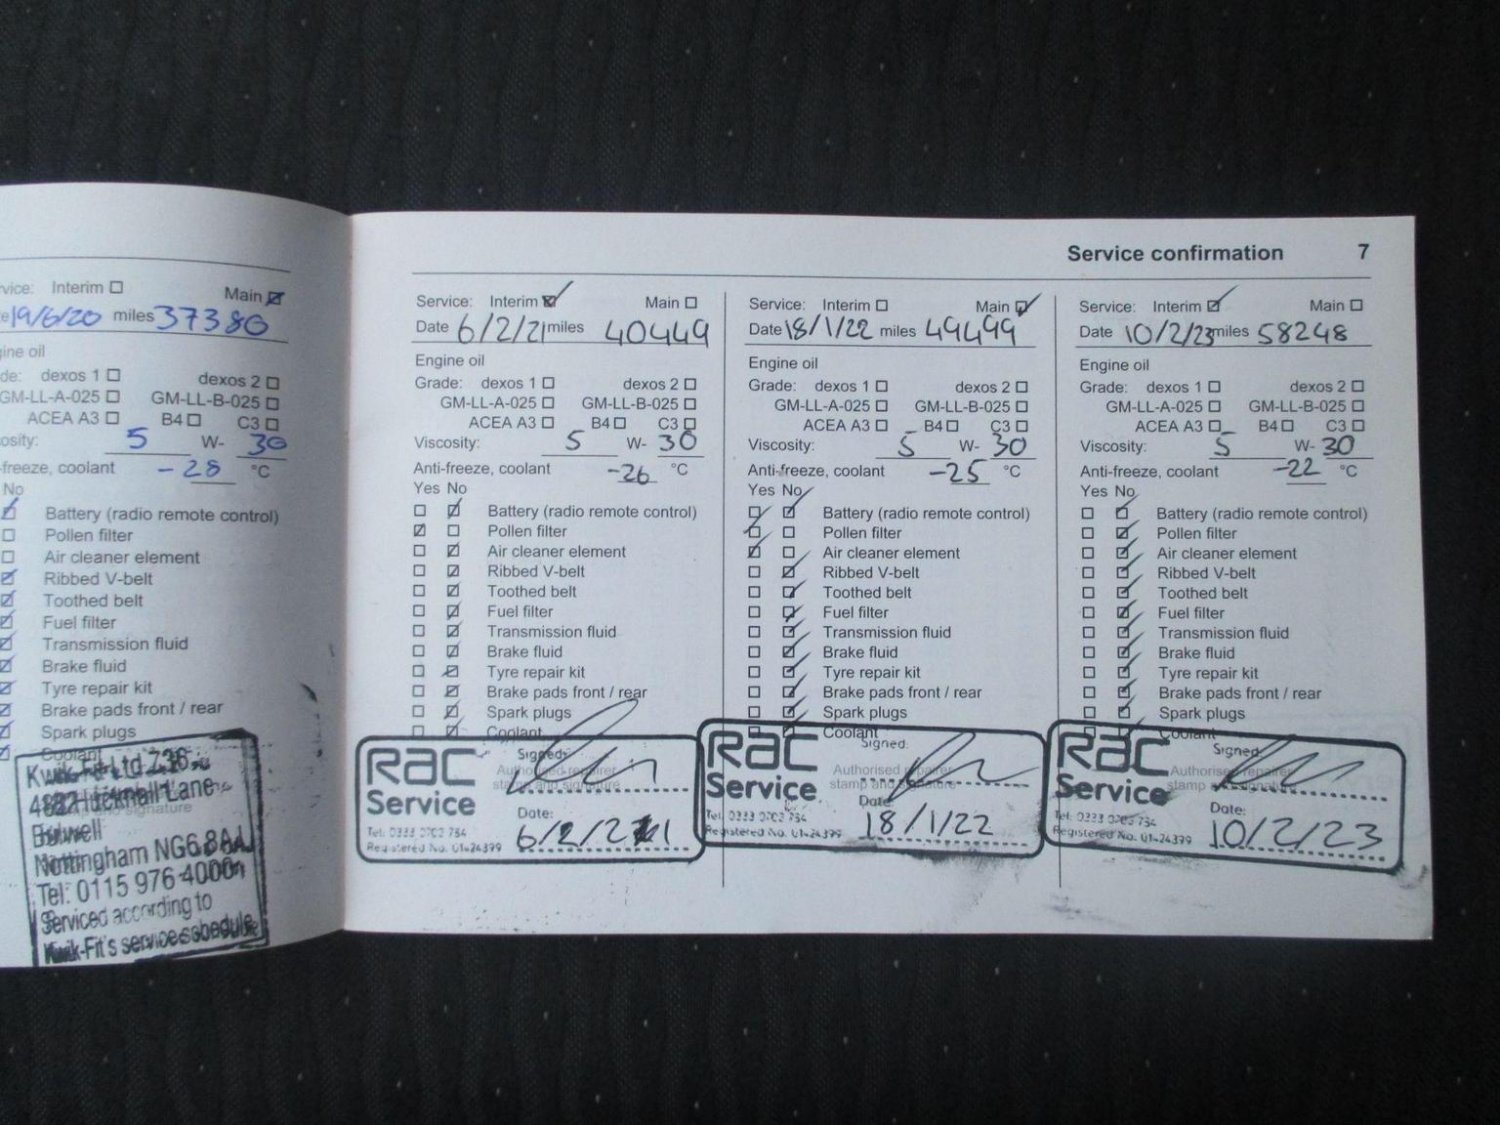 vice: Interim ☐ Main ☑
19/6/20 miles 37380
ine oil
de: dexos 1 ☐ dexos 2 ☐
GM-LL-A-025 ☐ GM-LL-B-025 ☐
ACEA A3 ☐ B4 ☐ C3 ☐
osity: 5 W- 30
-freeze, coolant -28 °C
No
☑ Battery (radio remote control)
☐ Pollen filter
☐ Air cleaner element
☑ Ribbed V-belt
☑ Toothed belt
☑ Fuel filter
☑ Transmission fluid
☑ Brake fluid
☑ Tyre repair kit
☑ Brake pads front / rear
☑ Spark plugs
☑ Coolant
Kwik-Fit Ltd
Hucknall Lane
Bulwell
Nottingham NG6 8AJ
Tel: 0115 976 4000
Serviced according to
Kwik-Fit's service schedule
Service confirmation 7
Service: Interim ☑ Main ☐
Date 6/2/21 miles 40449
Engine oil
Grade: dexos 1 ☐ dexos 2 ☐
GM-LL-A-025 ☐ GM-LL-B-025 ☐
ACEA A3 ☐ B4 ☐ C3 ☐
Viscosity: 5 W- 30
Anti-freeze, coolant -26 °C
Yes No
☐ ☑ Battery (radio remote control)
☑ ☐ Pollen filter
☐ ☑ Air cleaner element
☐ ☑ Ribbed V-belt
☐ ☑ Toothed belt
☐ ☑ Fuel filter
☐ ☑ Transmission fluid
☐ ☑ Brake fluid
☐ ☑ Tyre repair kit
☐ ☑ Brake pads front / rear
☐ ☑ Spark plugs
Coolant
Authorised repairer
stamp and signature
RAC
Service
Signed:
Date:
6/2/21
Service: Interim ☐ Main ☑
Date 18/1/22 miles 49499
Engine oil
Grade: dexos 1 ☐ dexos 2 ☐
GM-LL-A-025 ☐ GM-LL-B-025 ☐
ACEA A3 ☐ B4 ☐ C3 ☐
Viscosity: 5 W- 30
Anti-freeze, coolant -25 °C
Yes No
☐ ☑ Battery (radio remote control)
☑ ☐ Pollen filter
☑ ☐ Air cleaner element
☐ ☑ Ribbed V-belt
☐ ☑ Toothed belt
☐ ☑ Fuel filter
☐ ☑ Transmission fluid
☐ ☑ Brake fluid
☐ ☑ Tyre repair kit
☐ ☑ Brake pads front / rear
☐ ☑ Spark plugs
Coolant
Authorised repairer
stamp and signature
RAC
Service
Signed:
Date:
18/1/22
Service: Interim ☑ Main ☐
Date 10/2/23 miles 58248
Engine oil
Grade: dexos 1 ☐ dexos 2 ☐
GM-LL-A-025 ☐ GM-LL-B-025 ☐
ACEA A3 ☐ B4 ☐ C3 ☐
Viscosity: 5 W- 30
Anti-freeze, coolant -22 °C
Yes No
☐ ☑ Battery (radio remote control)
☐ ☑ Pollen filter
☐ ☑ Air cleaner element
☐ ☑ Ribbed V-belt
☐ ☑ Toothed belt
☐ ☑ Fuel filter
☐ ☑ Transmission fluid
☐ ☑ Brake fluid
☐ ☑ Tyre repair kit
☐ ☑ Brake pads front / rear
☐ ☑ Spark plugs
Coolant
Authorised repairer
stamp and signature
RAC
Service
Signed
Date:
10/2/23